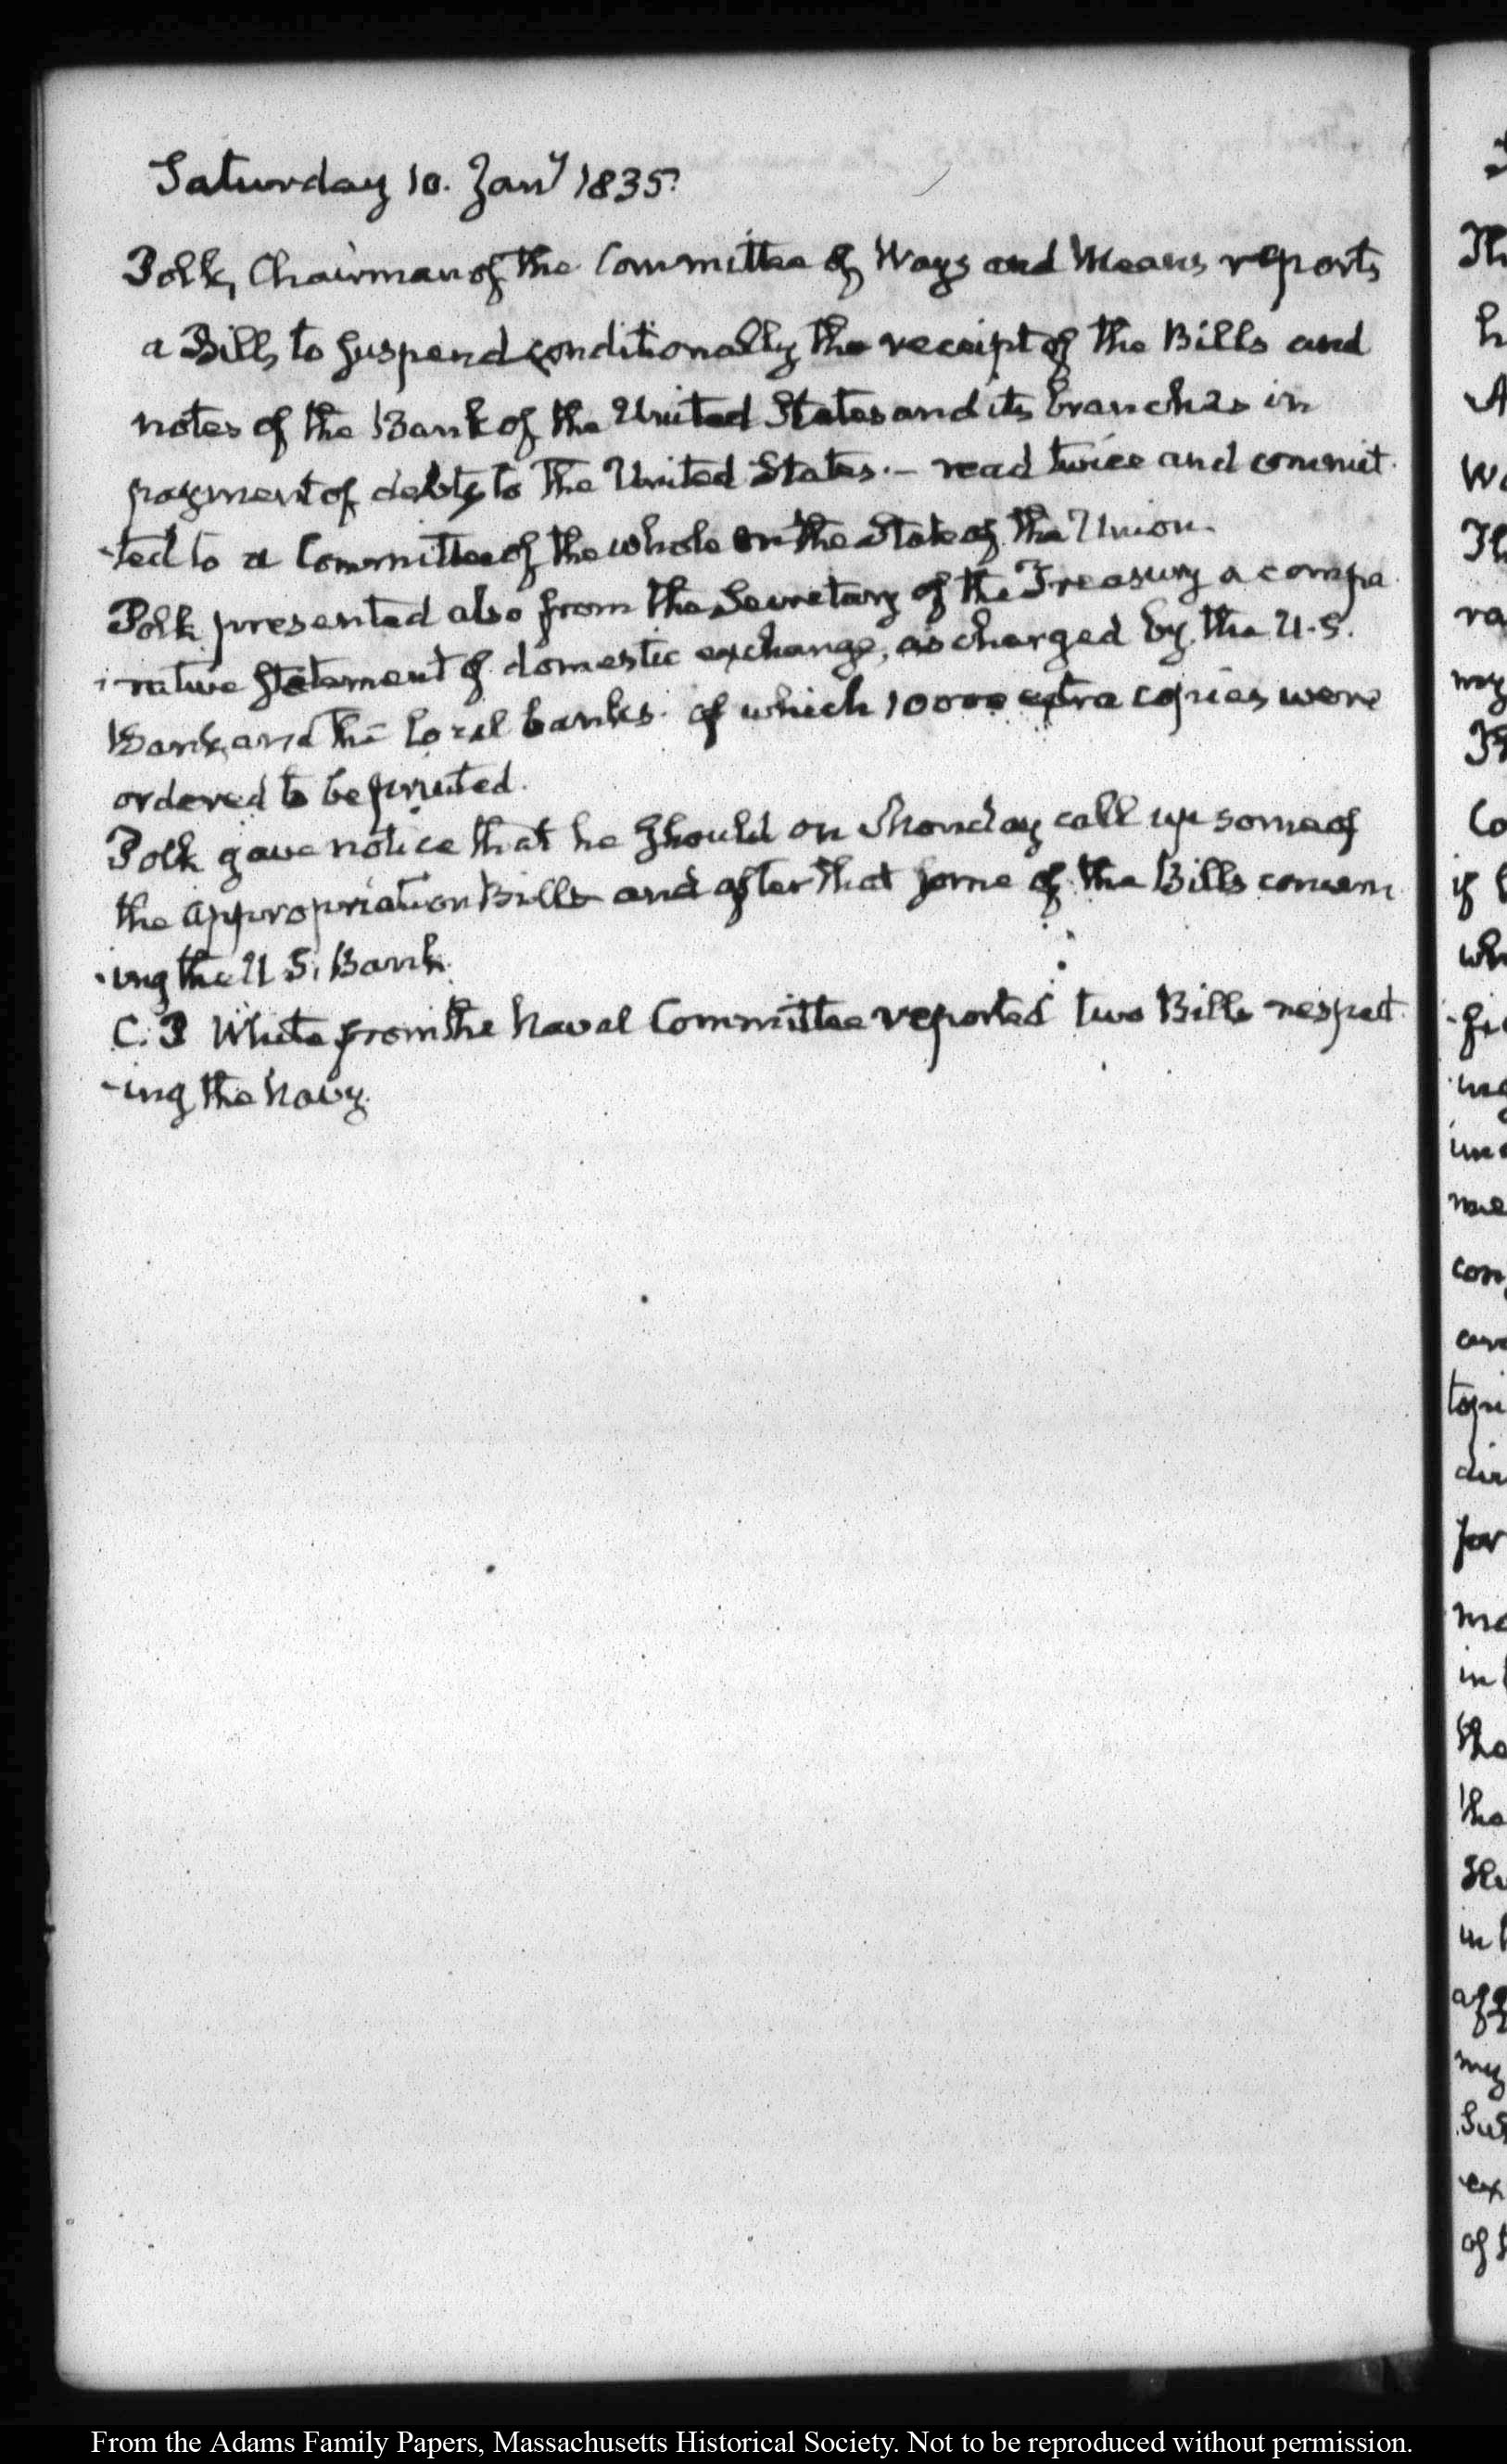 Saturday 10. Jany 1835.
Polk, Chairman of the Committee of Ways and Means reports
a Bill, to suspend conditionally the receipt of the Bills and
notes of the Bank of the United States and its branches in
payment of debts to the United States. — read twice and commit-
-ted to a Committee of the whole on the State of the Union
Polk presented also from the Secretary of the Treasury a compa-
-rative statement of domestic exchange, as charged by the U.S.
Bank and the local banks. of which 10000 extra copies were
ordered to be printed.
Polk gave notice that he should on Monday call up some of
the appropriation Bills and after that some of the Bills concern-
-ing the U.S. Bank.
C. P White from the Naval Committee reported two Bills respect-
-ing the Navy.
From the Adams Family Papers, Massachusetts Historical Society. Not to be reproduced without permission.